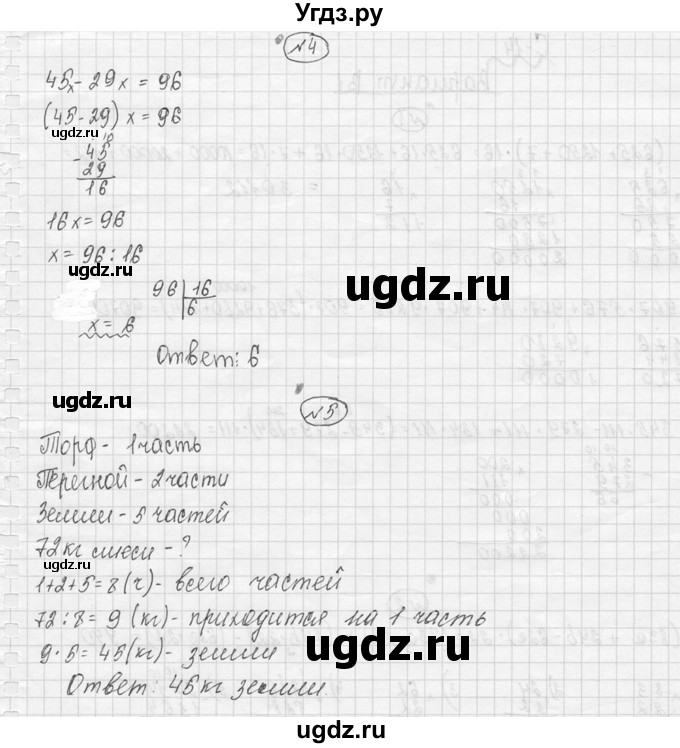 Угдз.ру
№4
45x - 29x = 96
(45-29) x = 96
ugdz.ru
10
- 45
29
16
16x = 96
x = 96 : 16
ugdz.ru
ugdz.ru
96 | 16
6
x = 6
Ответ: 6
ugdz.ru
ugdz.ru
№5
Торф - 1 часть
Перегной - 2 части
Земли - 5 частей
72 кг смеси - ?
1+2+5=8(ч) - всего частей
ugdz.ru
72:8= 9 (кг) - приходится на 1 часть
ugdz.ru
9·5=45(кг) - земли
Ответ: 45 кг земли.
ugdz.ru
ugdz.ru